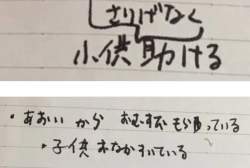 さりげなく
小供 助ける
・あおいい から おむすび もら回っている
・子供 おなかすいている